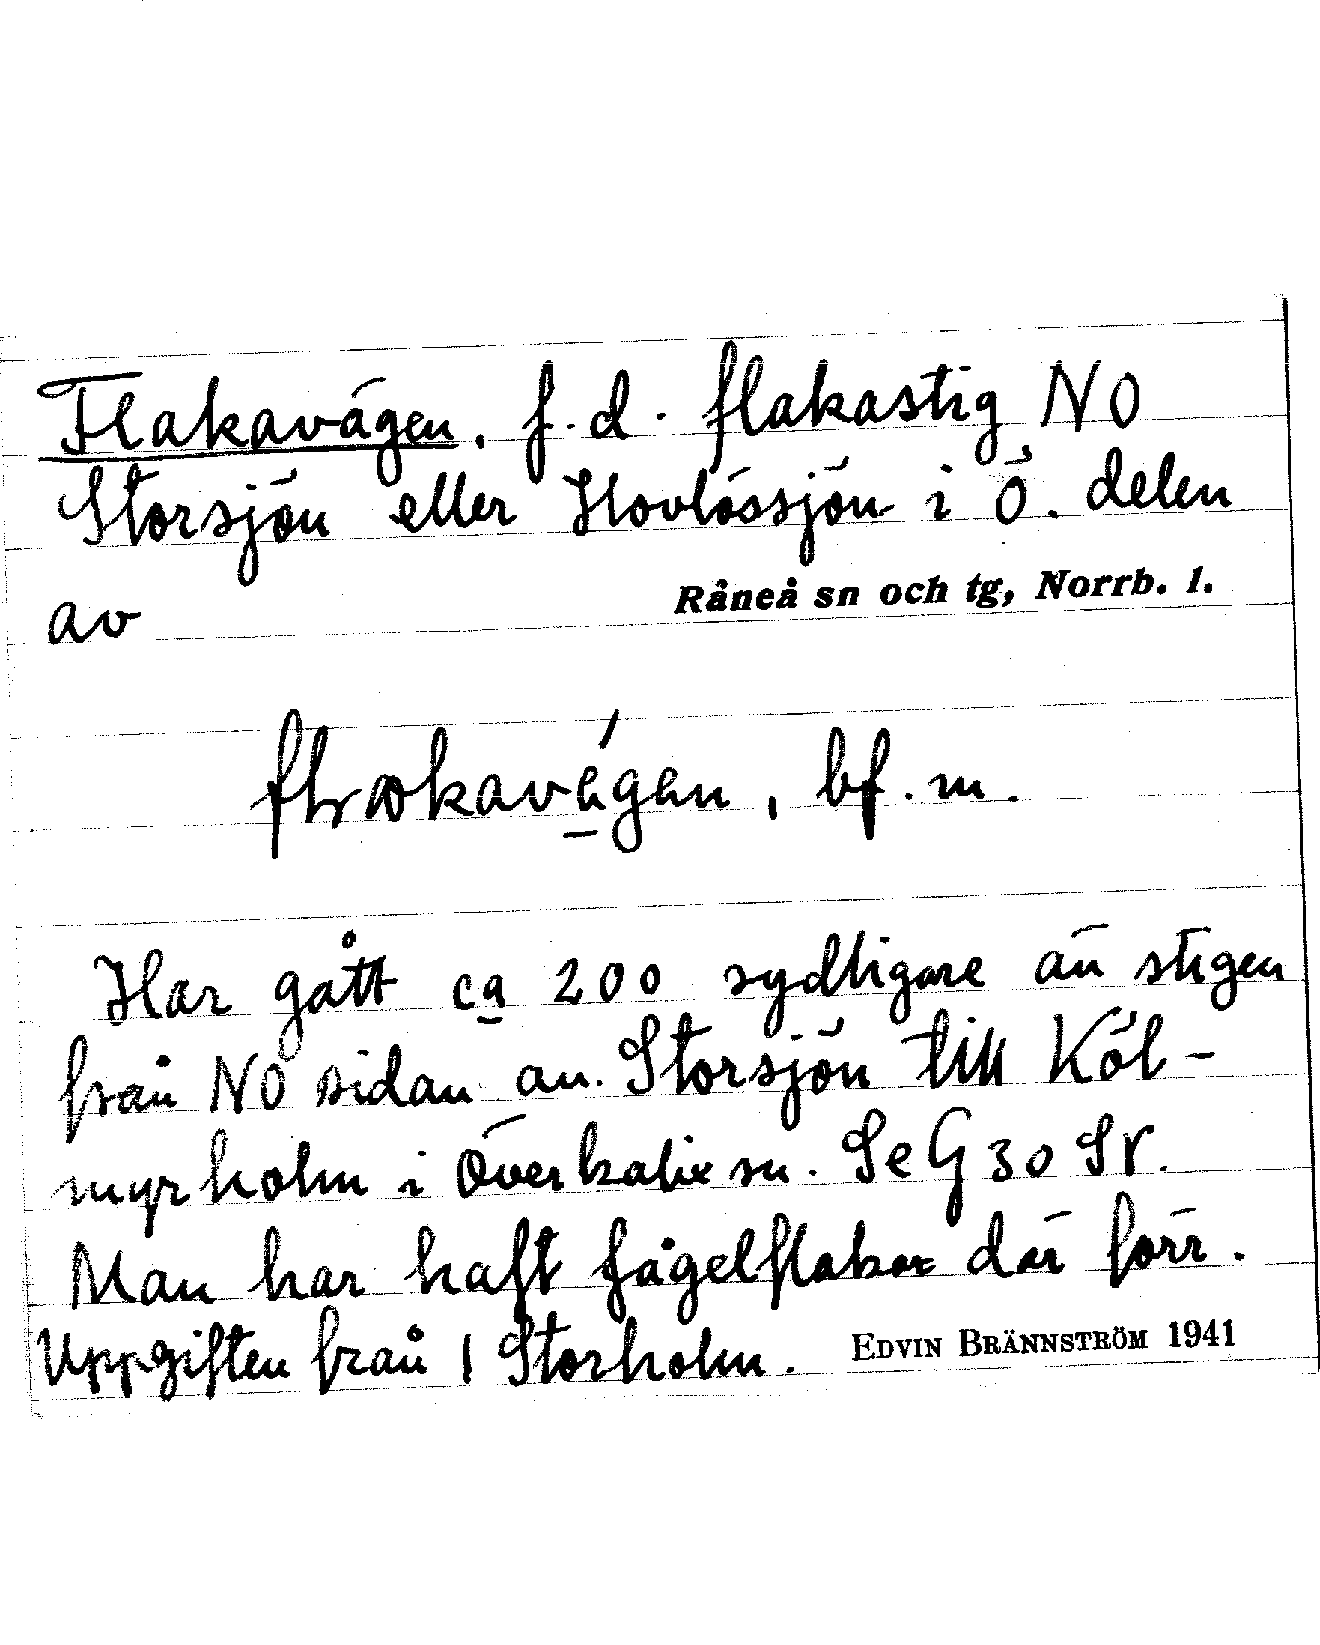 Flakavägen, f.d. flakastig NO
Storsjön eller Hovlössjön i Ö. delen
av Råneå sn och tg, Norrb. l.
bf. m.
Har gått ca 200 sydligare än stigen
från NO sidan av Storsjön till Köl-
myrholm i Överkalix sn. Se G 30 SV.
Man har haft fågelflakar där förr.
Uppgiften från 1 Storholm. EDVIN BRÄNNSTRÖM 1941